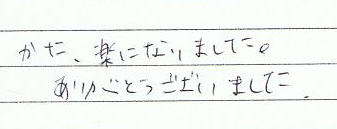 かた、楽になりました。
ありがとうございました